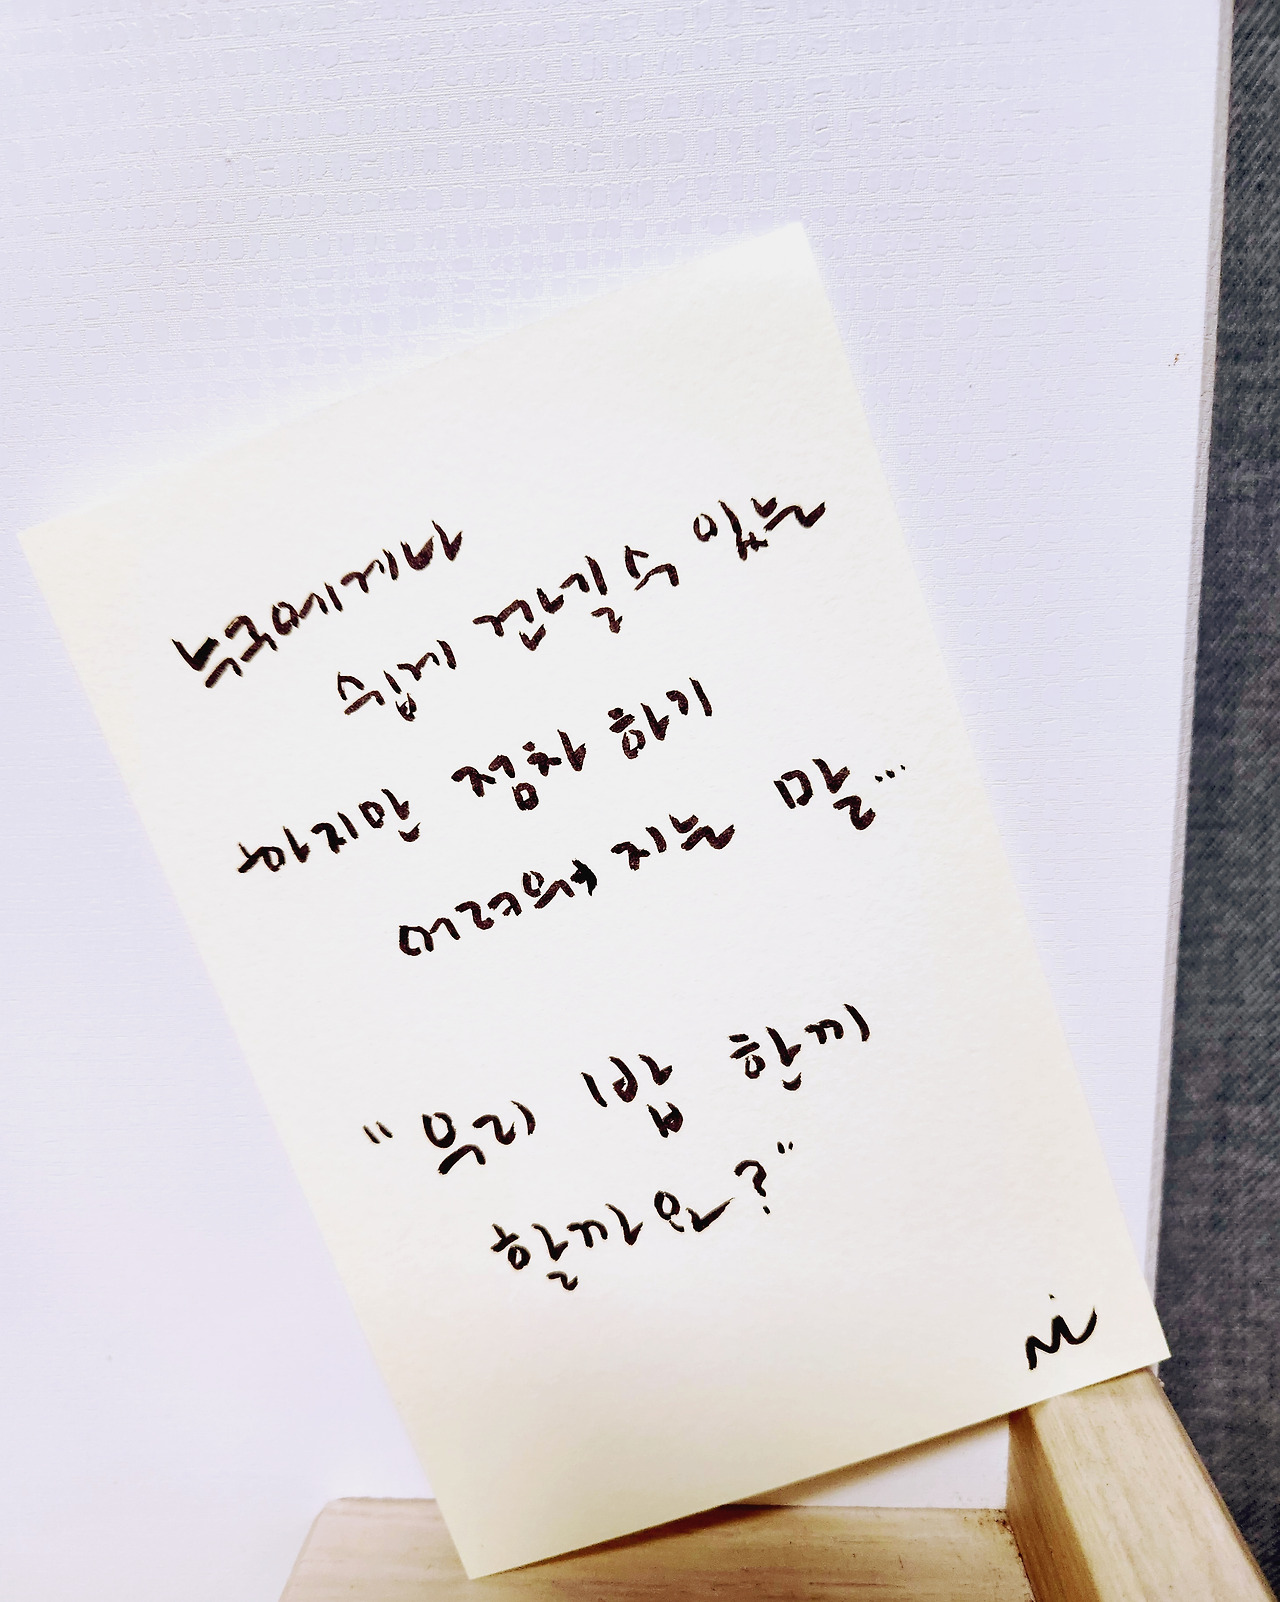 누구에게나
쉽게 건넬 수 있는
하지만 점차 하기
어려워 지는 말...
"우리 밥 한끼
할까요?"